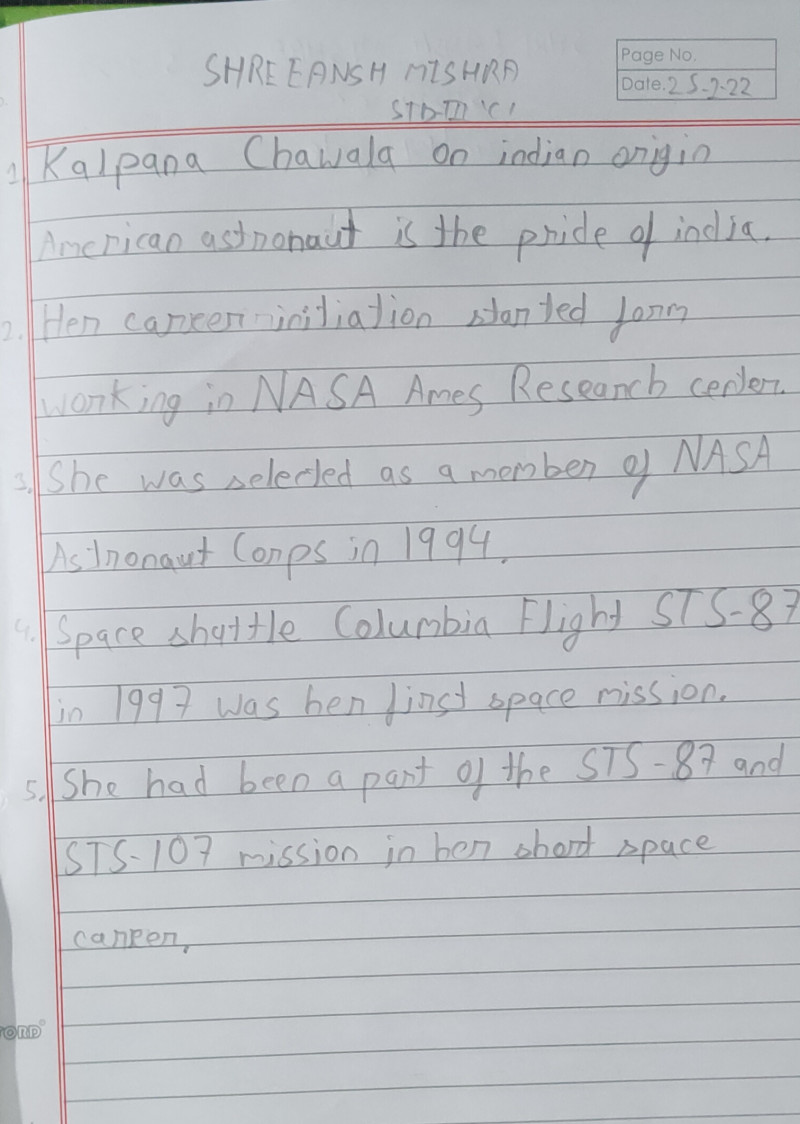 SHREEANSH MISHRA
Page No.
Date. 25-2-22
STD-III 'C'
1. Kalpana Chawala on indian origin
American astronaut is the pride of india.
2. Her career initiation started form
working in NASA Ames Research center.
3. She was selected as a member of NASA
Astronaut Corps in 1994.
4. Space shuttle Columbia Flight STS-87
in 1997 was her first space mission.
5. She had been a part of the STS-87 and
STS-107 mission in her short space
career.